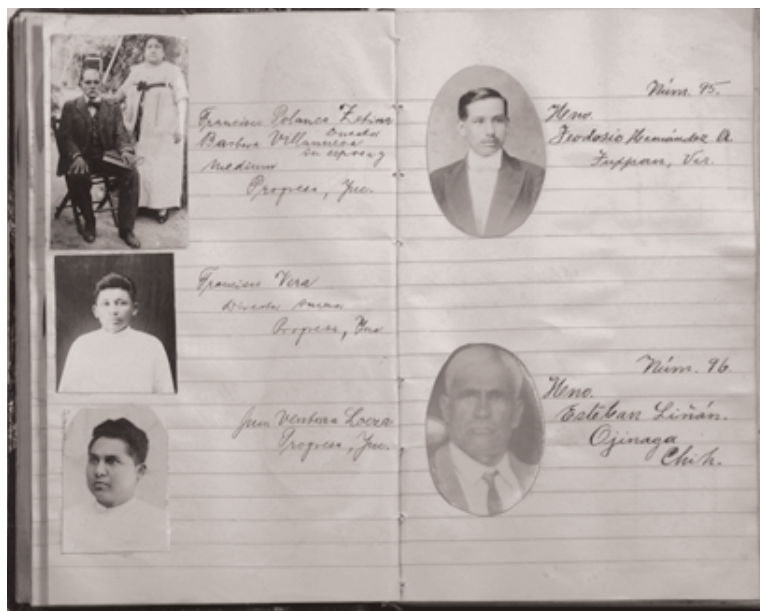 Francisco Polanco Zetina
Director
Barbara Villanueva
su esposa y
medium
Progreso, Yuc.
Francisco Vera
Director
Progreso, Yuc
Juan Ventura Loeza
Progreso, Yuc.
Núm. 95.
Hmno.
Teodosio Hernández A.
Tuxpan, Ver.
Núm. 96.
Hmno.
Esteban Liñán.
Ojinaga
Chih.